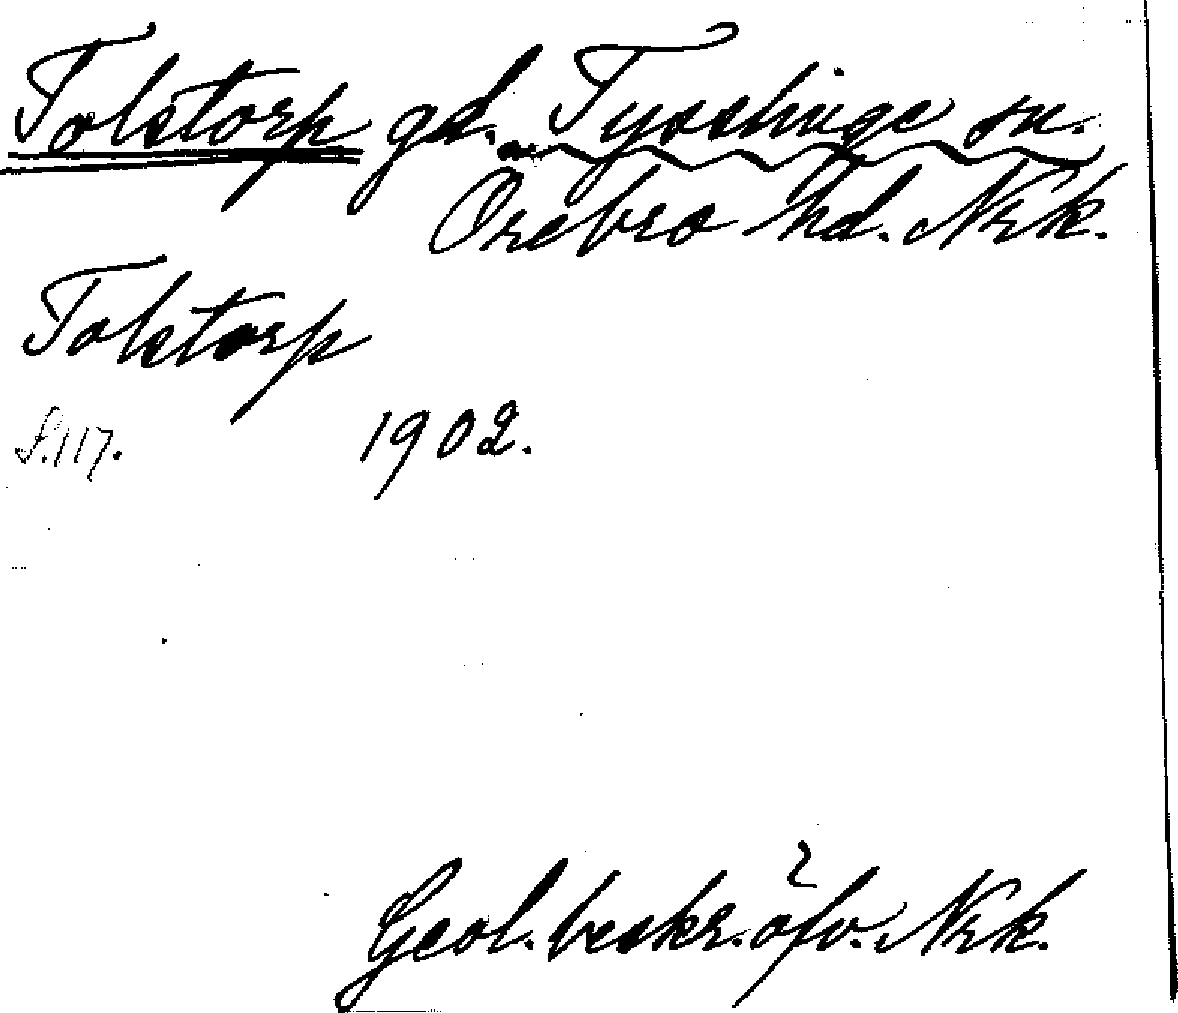 Tolstorp gd. Tysslinge sn.
Örebro hd. Nrk.
Tolstorp
S. 117. 1902.
Geol. beskr. öfv. Nrk.